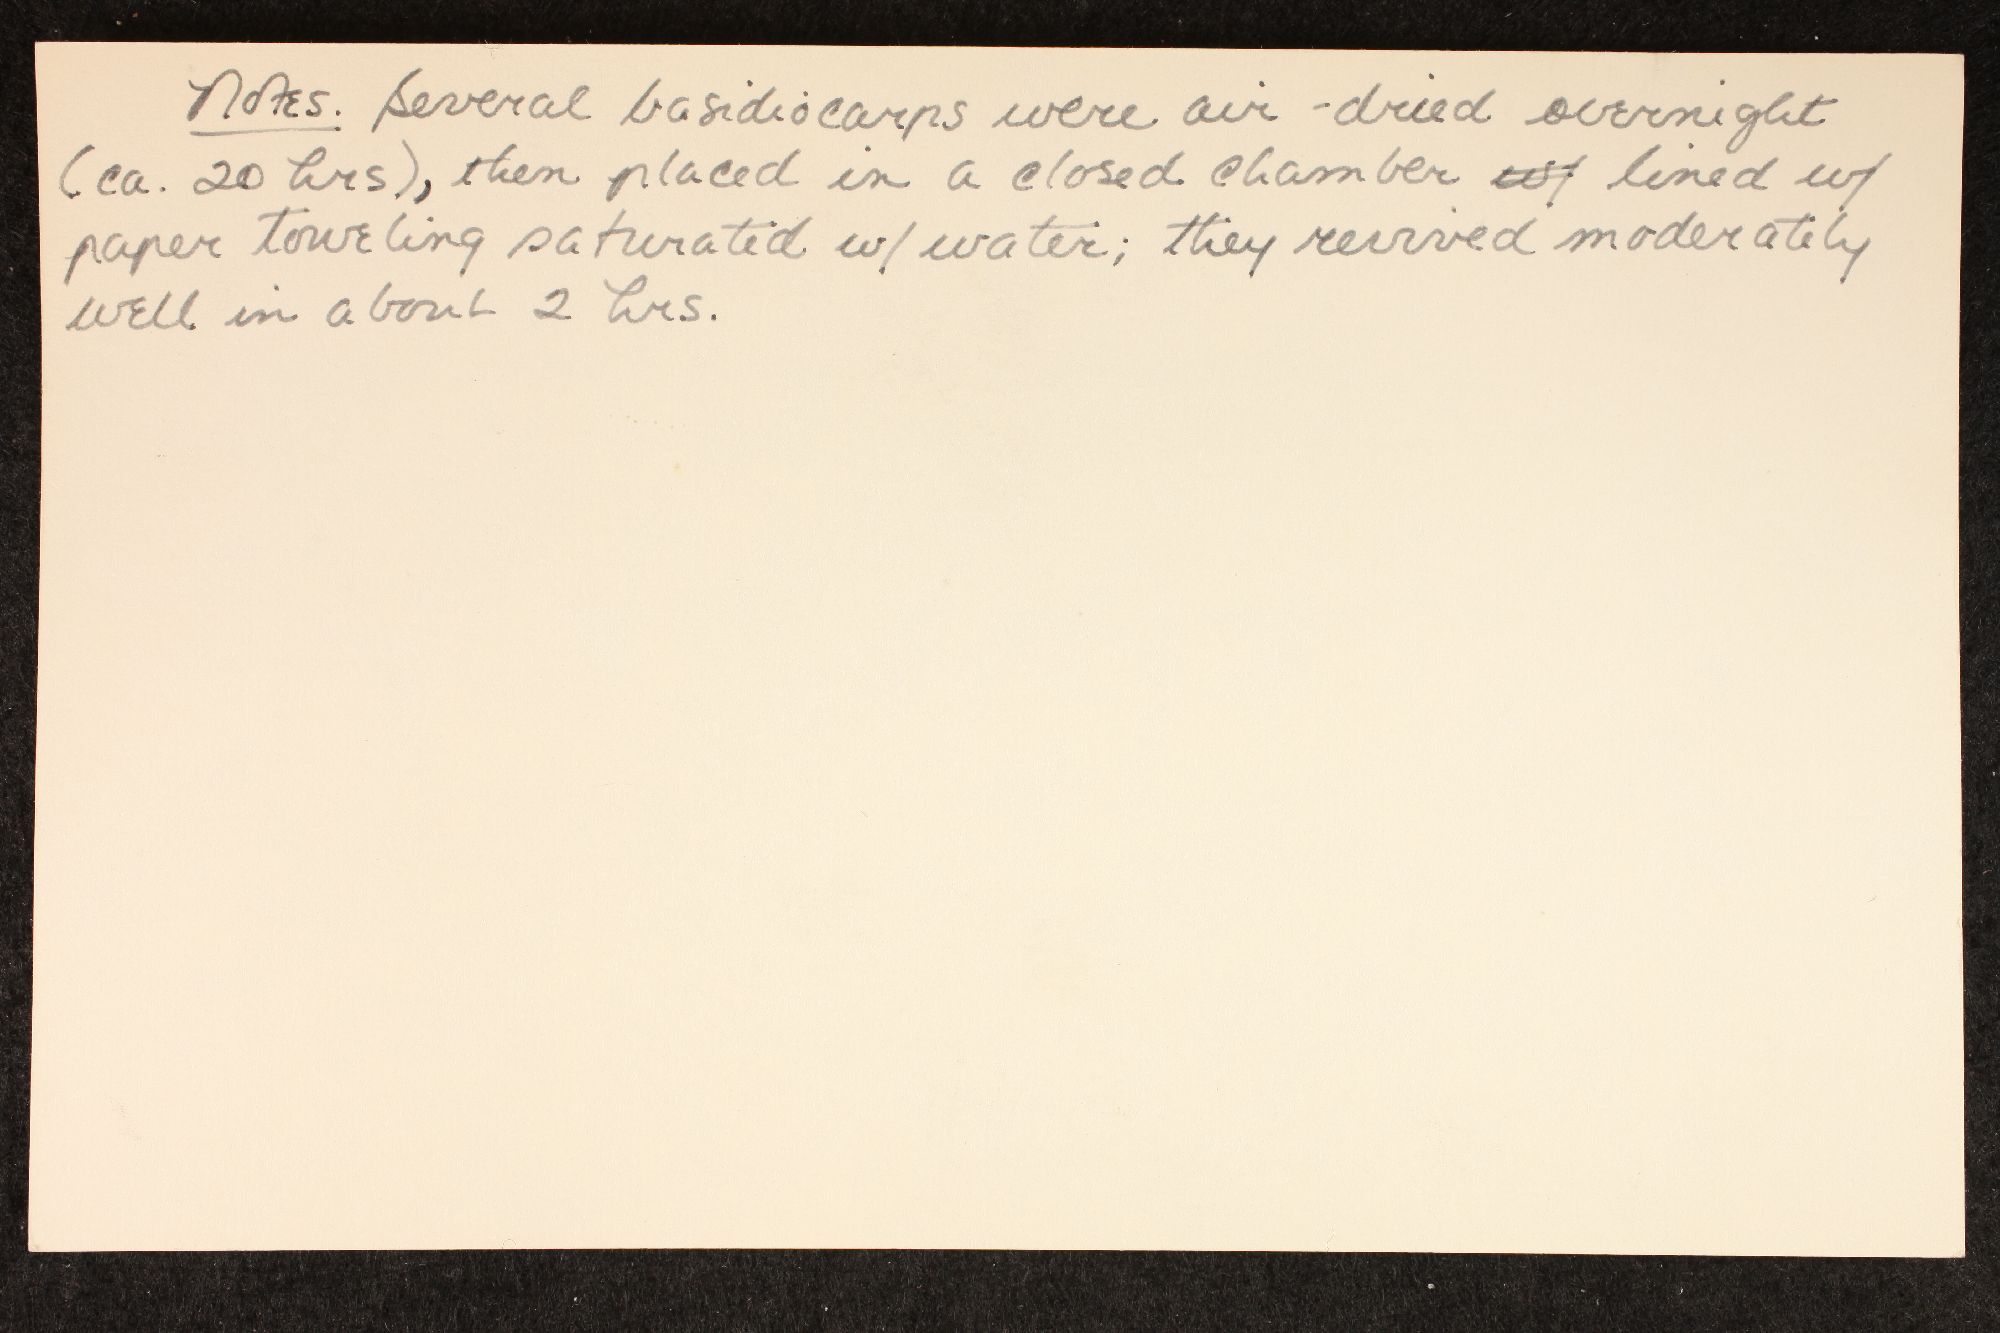 Notes. Several basidiocarps were air-dried overnight
(ca. 20 hrs), then placed in a closed chamber w/ lined w/
paper toweling saturated w/ water; they revived moderately
well in about 2 hrs.